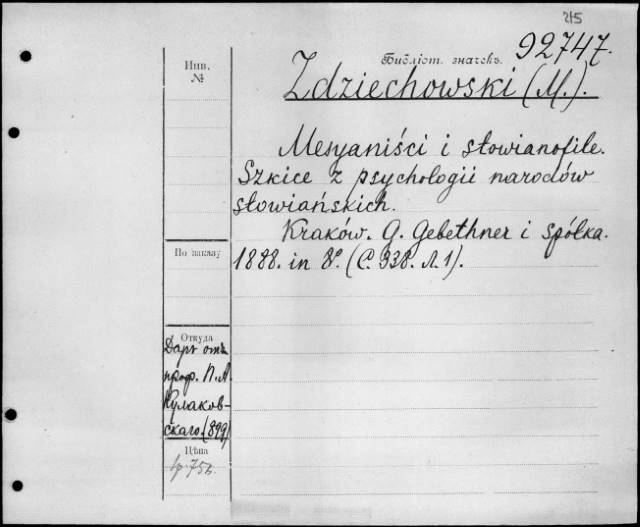 215
92747.
Инв.
№
Библіот. значекъ.
Zdziechowski (M.).
Mesyaniści i słowianofile.
Szkice z psychologii narodów
słowiańskich.
Kraków. G. Gebethner i spółka.
1888. in 8º. (С. 338. л. 1).
По заказу
Откуда
Даръ отъ
проф. П. А.
Кулаков-
скаго. (899)
Цѣна
1р. 75к.